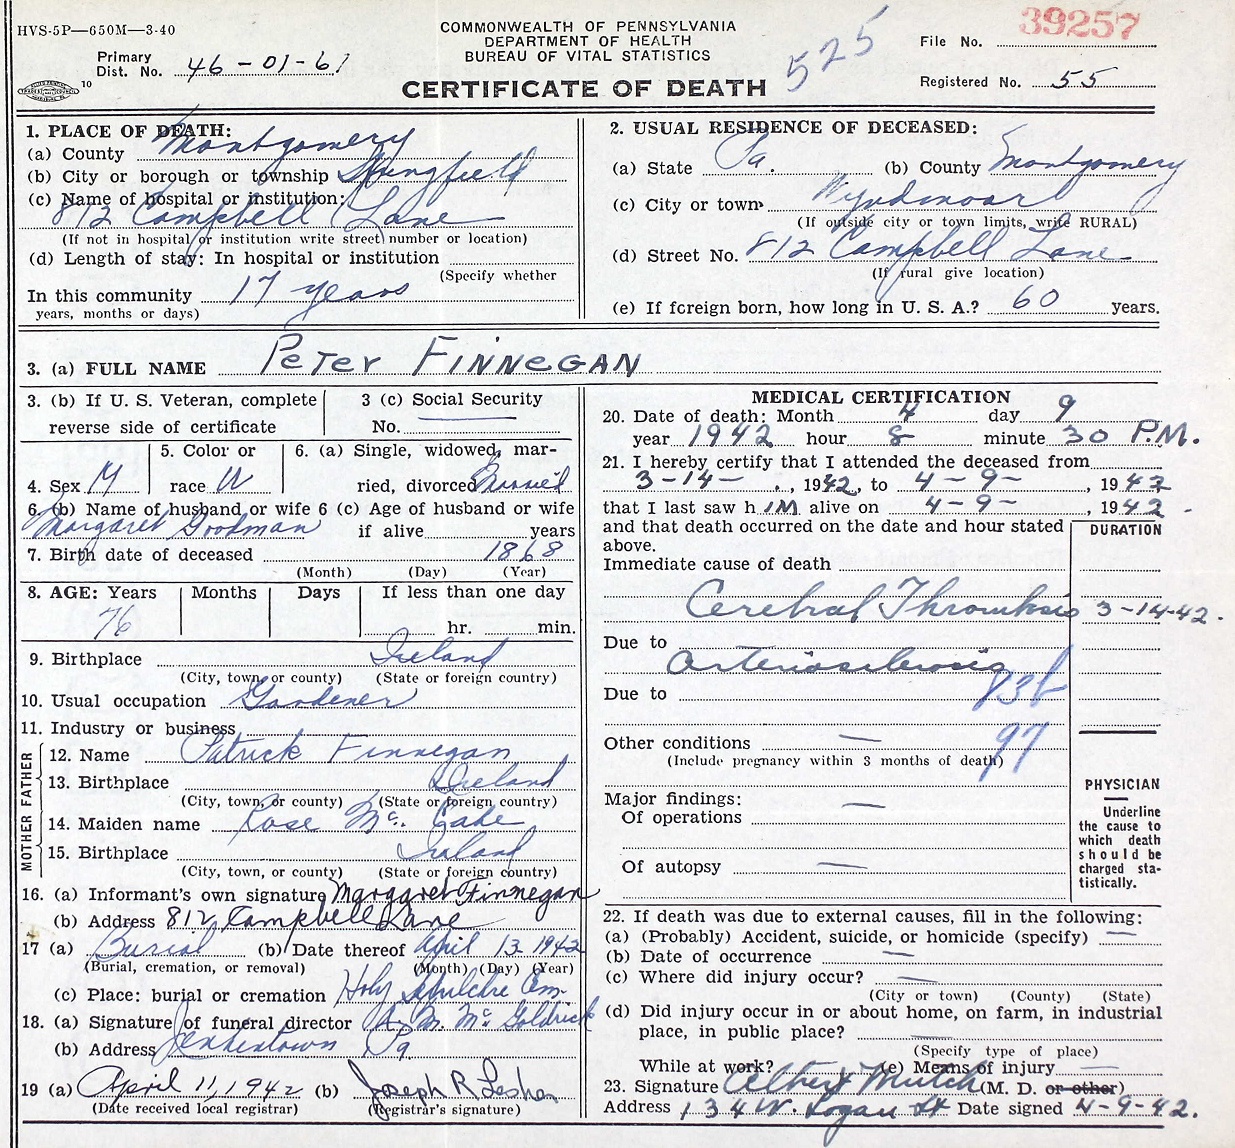 HVS-5P—650M—3-40
COMMONWEALTH OF PENNSYLVANIA
DEPARTMENT OF HEALTH
BUREAU OF VITAL STATISTICS
CERTIFICATE OF DEATH
525
39257
File No.
Primary
Dist. No. 46-01-61
10
Registered No. 55
1. PLACE OF DEATH:
(a) County Montgomery
(b) City or borough or township Springfield
(c) Name of hospital or institution:
812 Campbell Lane
(If not in hospital or institution write street number or location)
(d) Length of stay: In hospital or institution
(Specify whether
In this community 17 years
years, months or days)
2. USUAL RESIDENCE OF DECEASED:
(a) State Pa. (b) County Montgomery
(c) City or town Wyndmoor
(If outside city or town limits, write RURAL)
(d) Street No. 812 Campbell Lane
(If rural give location)
(e) If foreign born, how long in U. S. A.? 60 years.
3. (a) FULL NAME Peter Finnegan
3. (b) If U. S. Veteran, complete
reverse side of certificate
3 (c) Social Security
No.
4. Sex M
5. Color or
race W
6. (a) Single, widowed, mar-
ried, divorced Married
6. (b) Name of husband or wife
Margaret Goodman
6 (c) Age of husband or wife
if alive years
7. Birth date of deceased 1868
(Month) (Day) (Year)
8. AGE: Years Months Days If less than one day
76 hr. min.
9. Birthplace Ireland
(City, town, or county) (State or foreign country)
10. Usual occupation Gardener
11. Industry or business
FATHER
12. Name Patrick Finnegan
13. Birthplace Ireland
(City, town, or county) (State or foreign country)
MOTHER
14. Maiden name Rose Mc. Cabe
15. Birthplace Ireland
(City, town, or county) (State or foreign country)
16. (a) Informant's own signature Margaret Finnegan
(b) Address 812 Campbell Lane
17 (a) Burial (b) Date thereof April 13 1942
(Burial, cremation, or removal) (Month) (Day) (Year)
(c) Place: burial or cremation Holy Sepulchre Cem.
18. (a) Signature of funeral director M. McGoldrick
(b) Address Jenkintown Pa
19 (a) April 11, 1942 (b) Joseph R Lesher
(Date received local registrar) (Registrar's signature)
MEDICAL CERTIFICATION
20. Date of death: Month 4 day 9
year 1942 hour 8 minute 30 P.M.
21. I hereby certify that I attended the deceased from
3-14-, 1942, to 4-9-, 1942
that I last saw him alive on 4-9-, 1942.
and that death occurred on the date and hour stated
above.
DURATION
Immediate cause of death
Cerebral Thrombosis 3-14-42.
Due to
Arteriosclerosis
Due to 83b
Other conditions — 97
(Include pregnancy within 3 months of death)
Major findings:
Of operations —
Of autopsy —
PHYSICIAN
Underline
the cause to
which death
should be
charged sta-
tistically.
22. If death was due to external causes, fill in the following:
(a) (Probably) Accident, suicide, or homicide (specify) —
(b) Date of occurrence —
(c) Where did injury occur? —
(City or town) (County) (State)
(d) Did injury occur in or about home, on farm, in industrial
place, in public place? —
(Specify type of place)
While at work? (e) Means of injury —
23. Signature Albert Mutch (M. D. or other)
Address 134 W. Logan St Date signed 4-9-42.